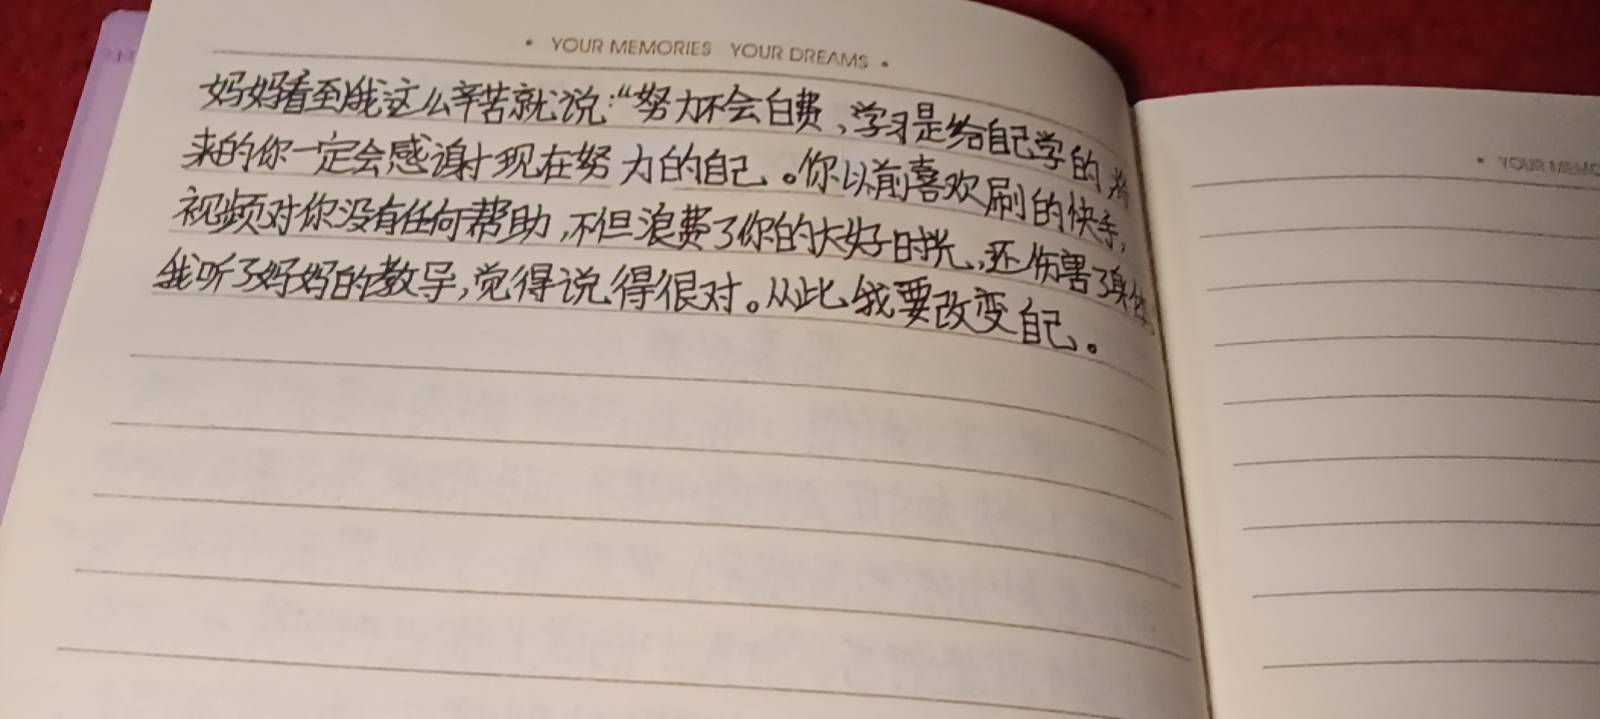 • YOUR MEMORIES YOUR DREAMS •
妈妈看到我这么辛苦就说:“努力不会白费、学习是给自己学的将
来的你一定会感谢现在努力的自己。你以前喜欢刷的快手,
视频对你没有任何帮助,不但浪费了你的大好时光,还伤害了身体,
我听了妈妈的教导,觉得说得很对。从此我要改变自己。
• YOUR MEMO